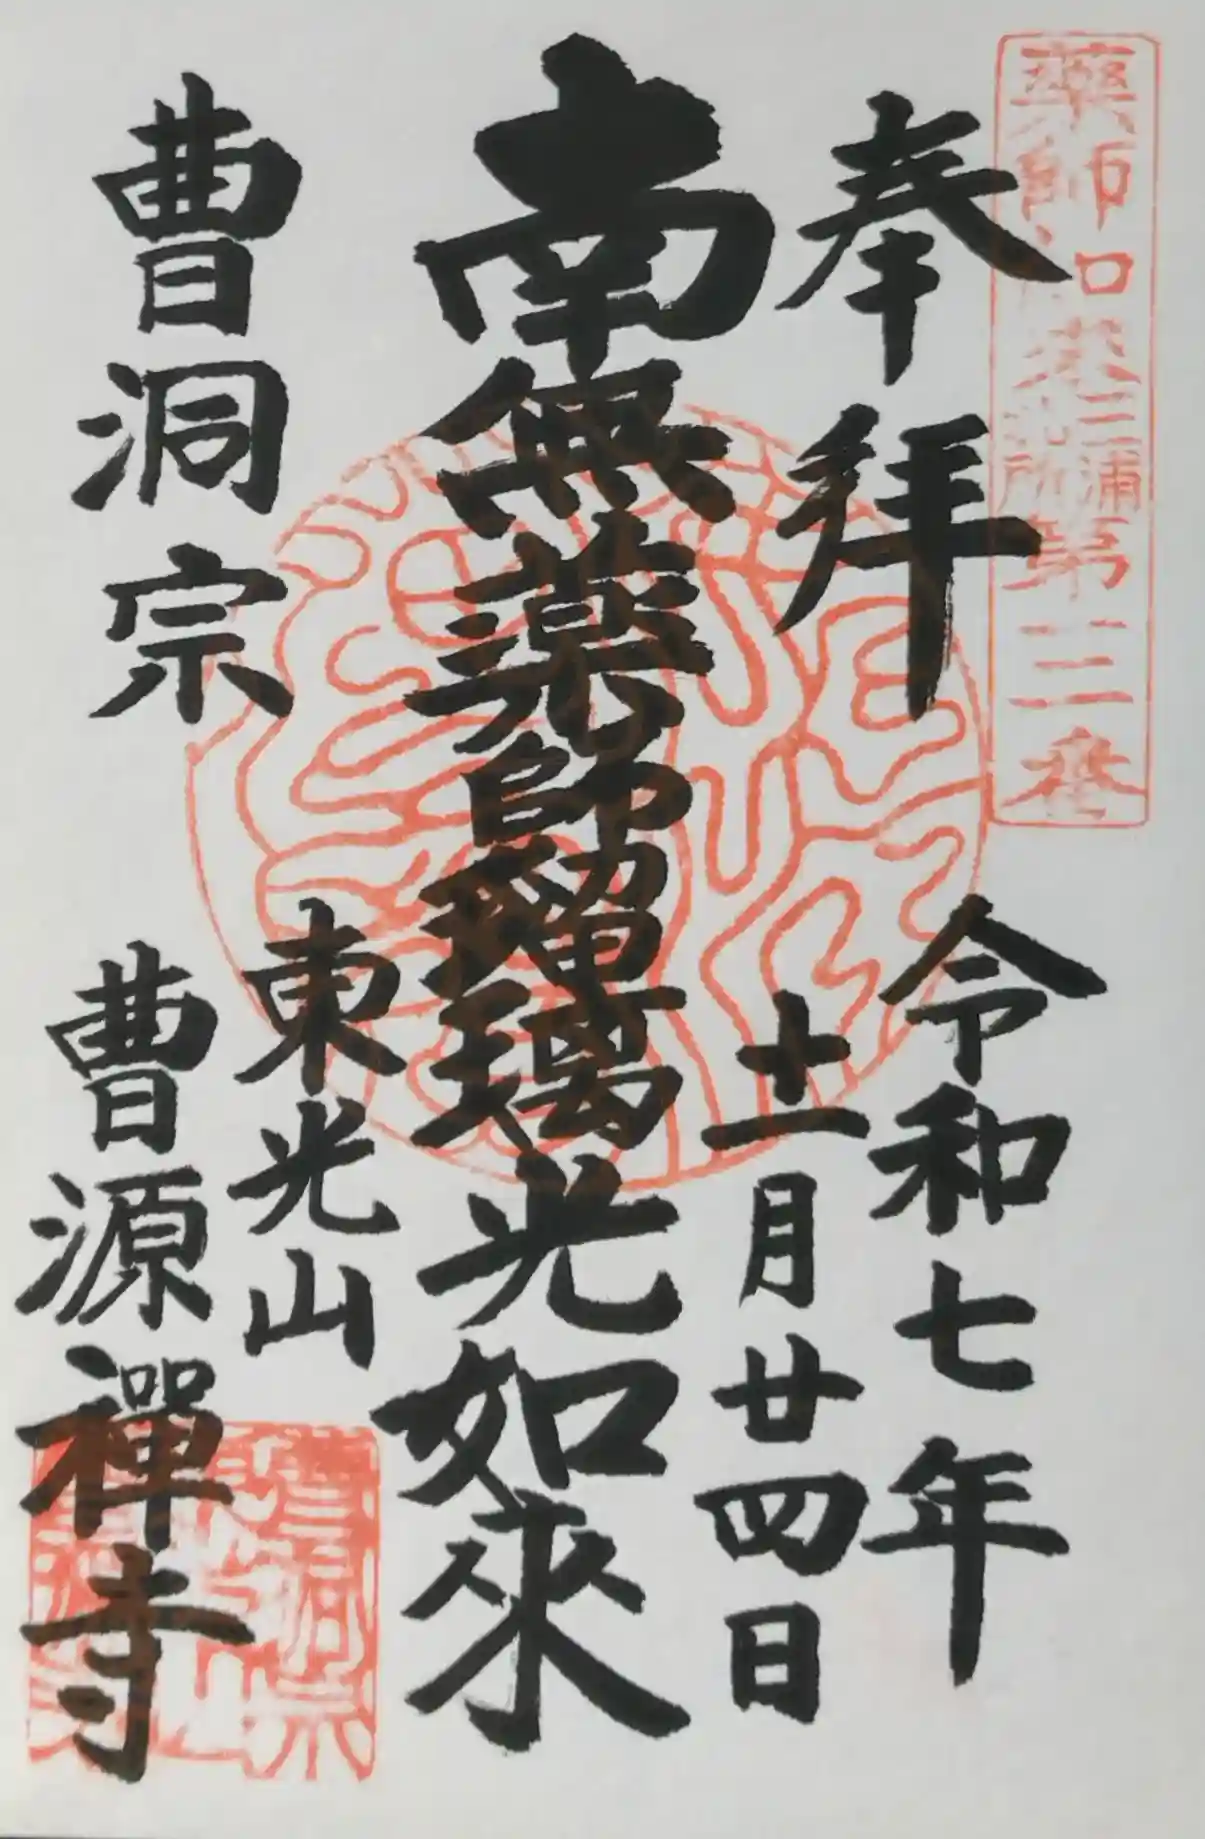 藥師如来三浦札所第三番
奉拝
令和七年
十二月廿四日
南無薬師瑠璃光如來
曹洞宗
東光山
曹源禪寺